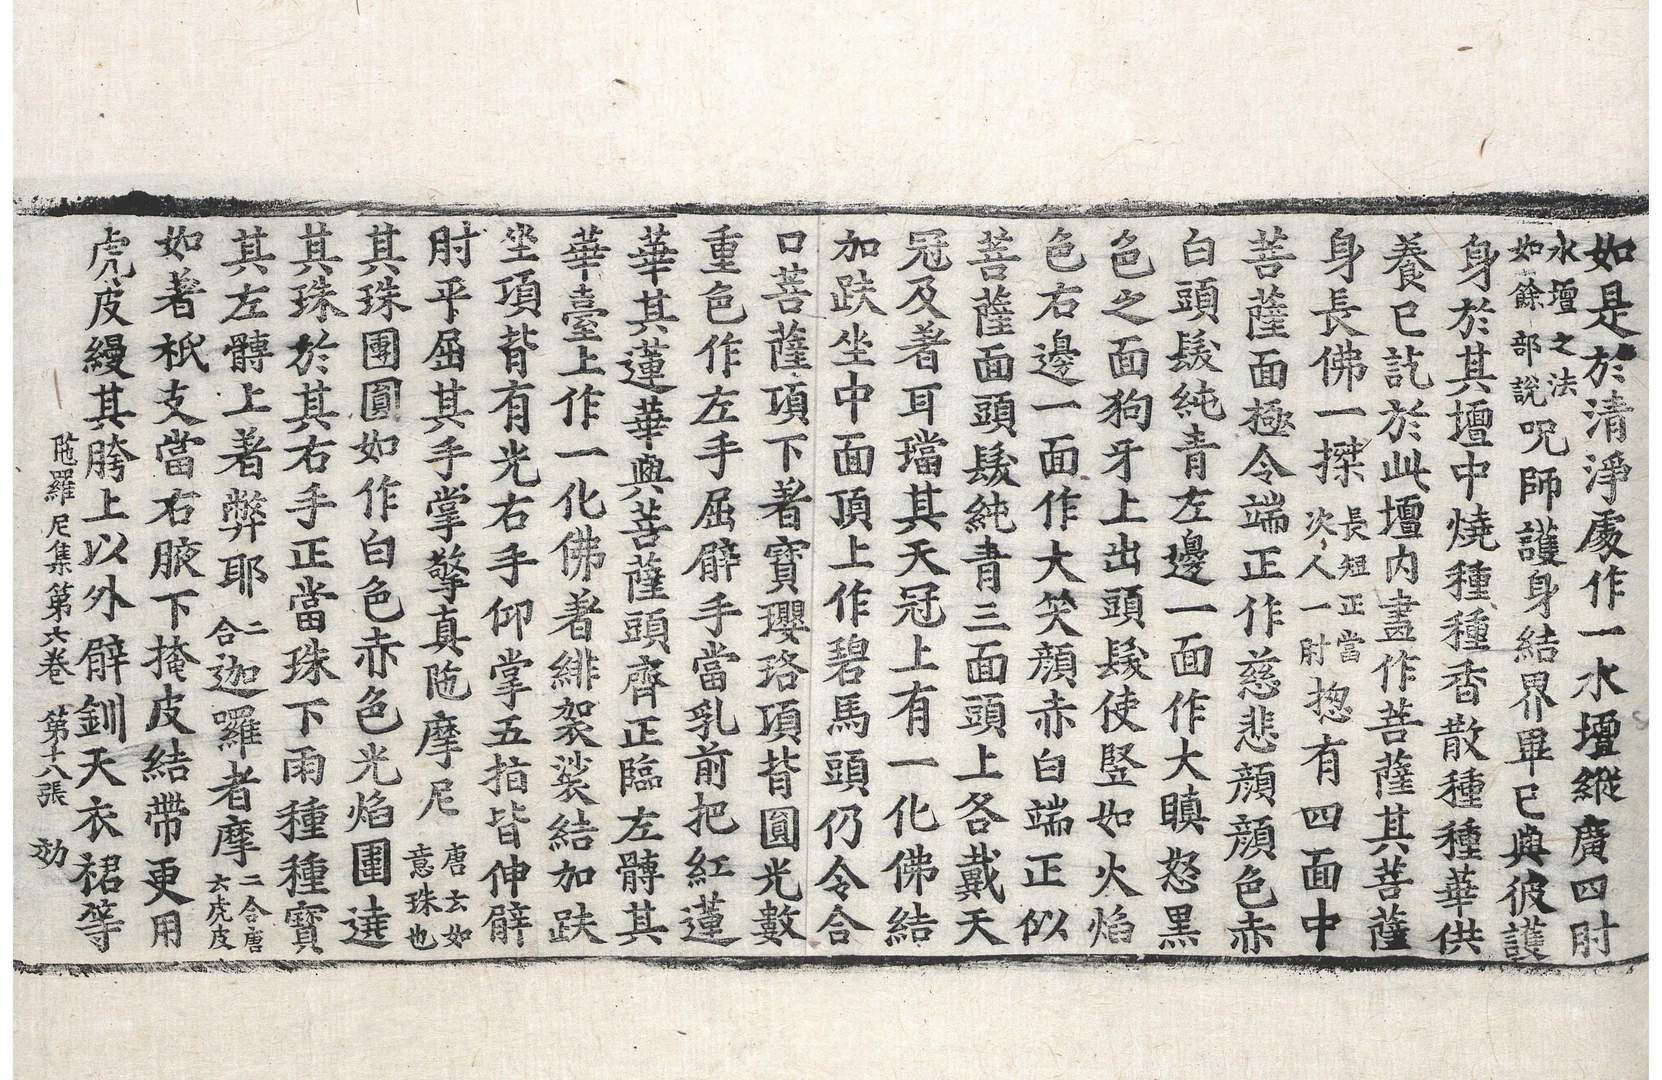 如是於清淨處作一水壇縱廣四肘
水壇之法如餘部說呪師護身結界畢已與彼護
身於其壇中燒種種香散種種華供
養已訖於此壇內畫作菩薩其菩薩
身長佛一搩長短正當次人一肘揔有四面中
菩薩面極令端正作慈悲顏顏色赤
白頭髮純青左邊一面作大瞋怒黑
色之面狗牙上出頭髮使竪如火焰
色右邊一面作大笑顏赤白端正似
菩薩面頭髮純青三面頭上各戴天
冠及著耳璫其天冠上有一化佛結
加趺坐中面頂上作碧馬頭仍令合
口菩薩項下著寶瓔珞項背圓光數
重色作左手屈臂手當乳前把紅蓮
華其蓮華與菩薩頭齊正臨左髆其
華臺上作一化佛著緋袈裟結加趺
坐項背有光右手仰掌五指皆伸臂
肘平屈其手掌擎真陁摩尼唐云如意珠也
其珠團圓如作白色赤色光焰圍遶
其珠於其右手正當珠下雨種種寶
其左髆上著弊耶二合迦囉者摩二合唐云虎皮
如著衹支當右腋下掩皮結帶更用
虎皮縵其胯上以外臂釧天衣裙等
陁羅尼集第六卷　第十八張　効